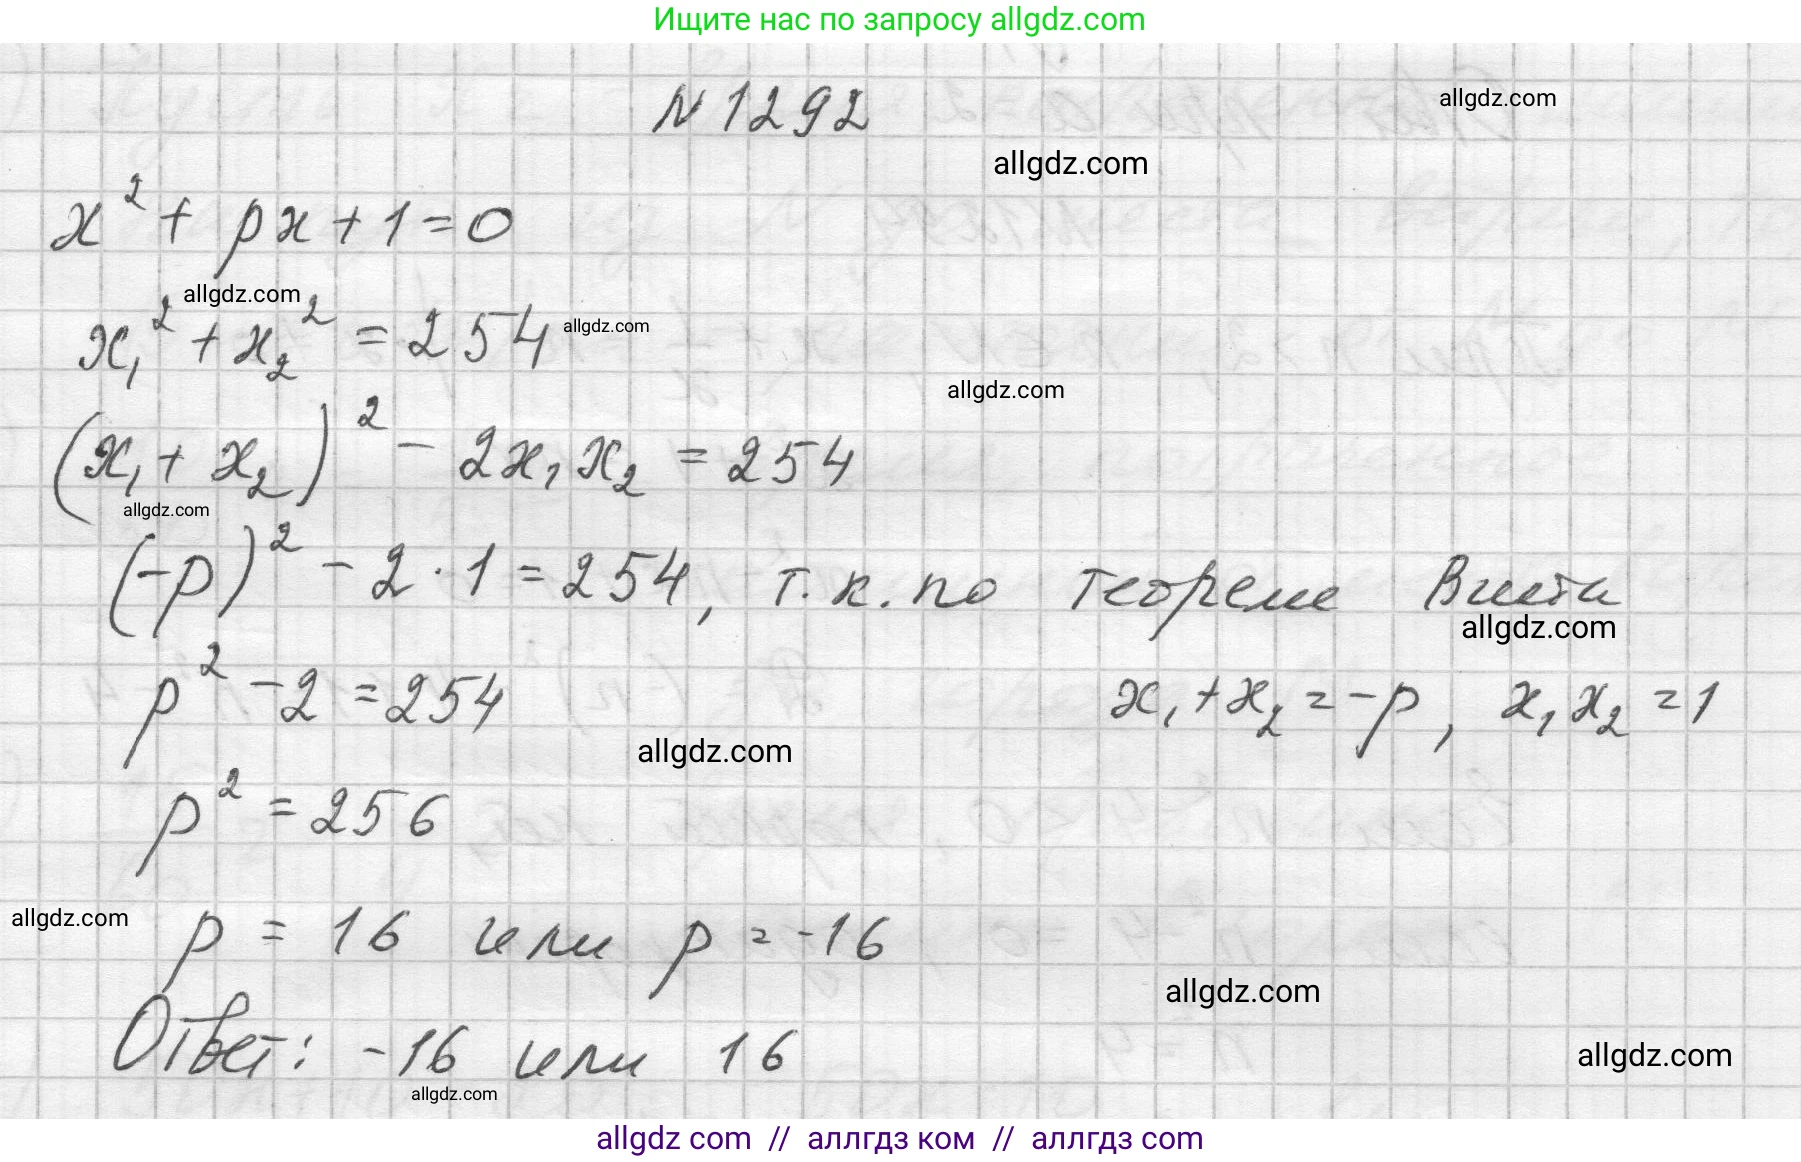 Ищите нас по запросу allgdz.com
N 1292
allgdz.com
allgdz.com
x² + px + 1 = 0
allgdz.com
x₁² + x₂² = 254
allgdz.com
allgdz.com
(x₁ + x₂)² - 2x₁x₂ = 254
allgdz.com
(-p)² - 2 · 1 = 254, т.к. по теореме Виета
allgdz.com
p² - 2 = 254
x₁ + x₂ = -p, x₁x₂ = 1
allgdz.com
p² = 256
allgdz.com
p = 16 или p = -16
allgdz.com
Ответ: -16 или 16
allgdz.com
allgdz.com
allgdz com // аллгдз ком // аллгдз com